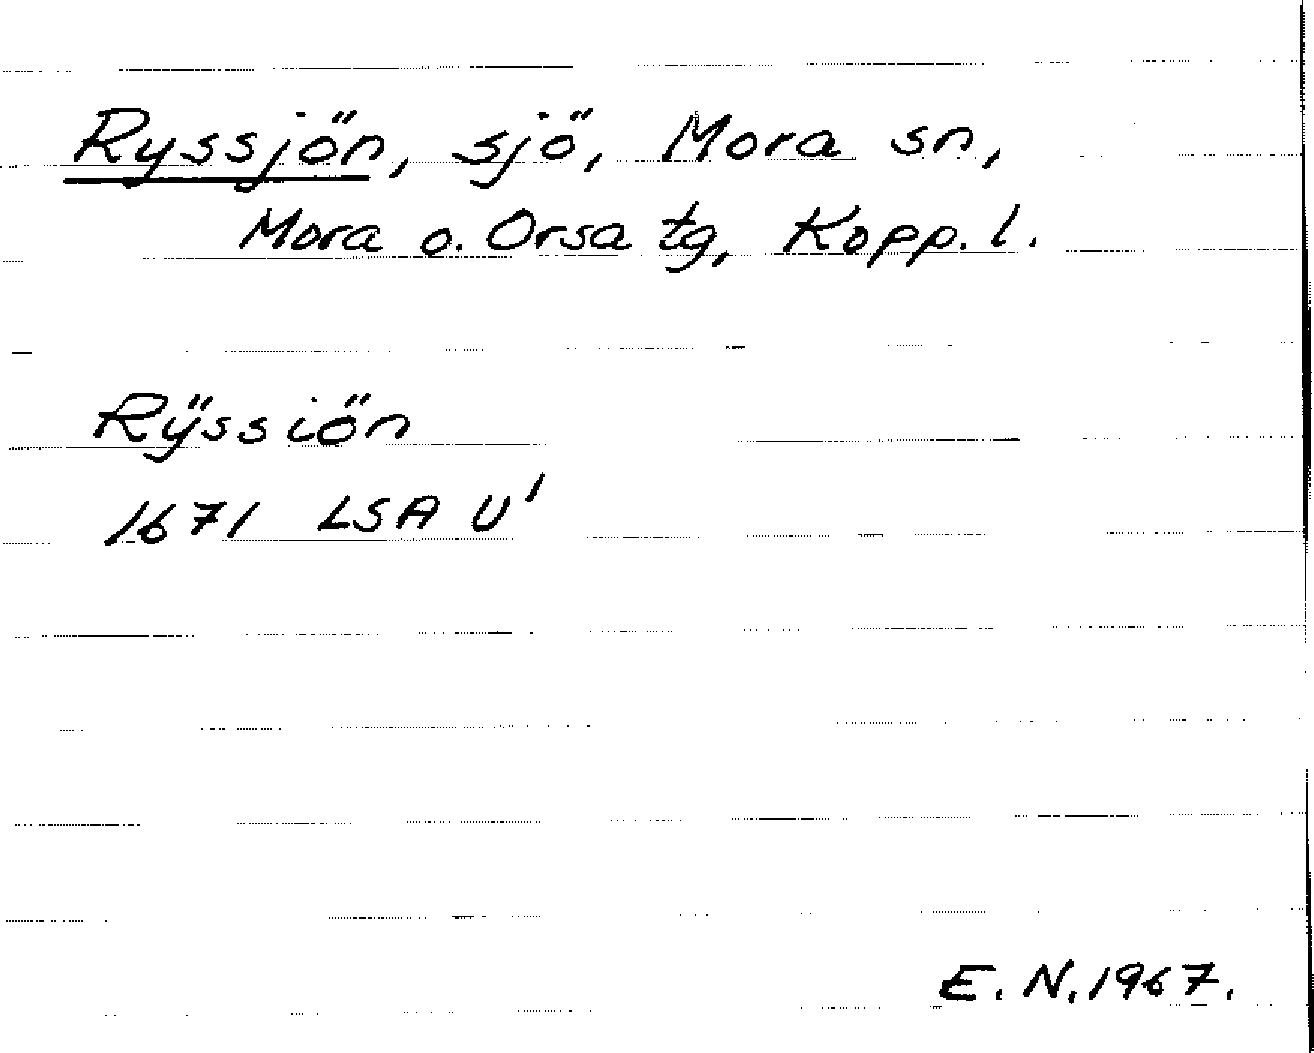 Ryssjön, sjö, Mora sn,
Mora o. Orsa tg, Kopp. l.
Rÿssiön
1671 LSA U'
E. N. 1967.